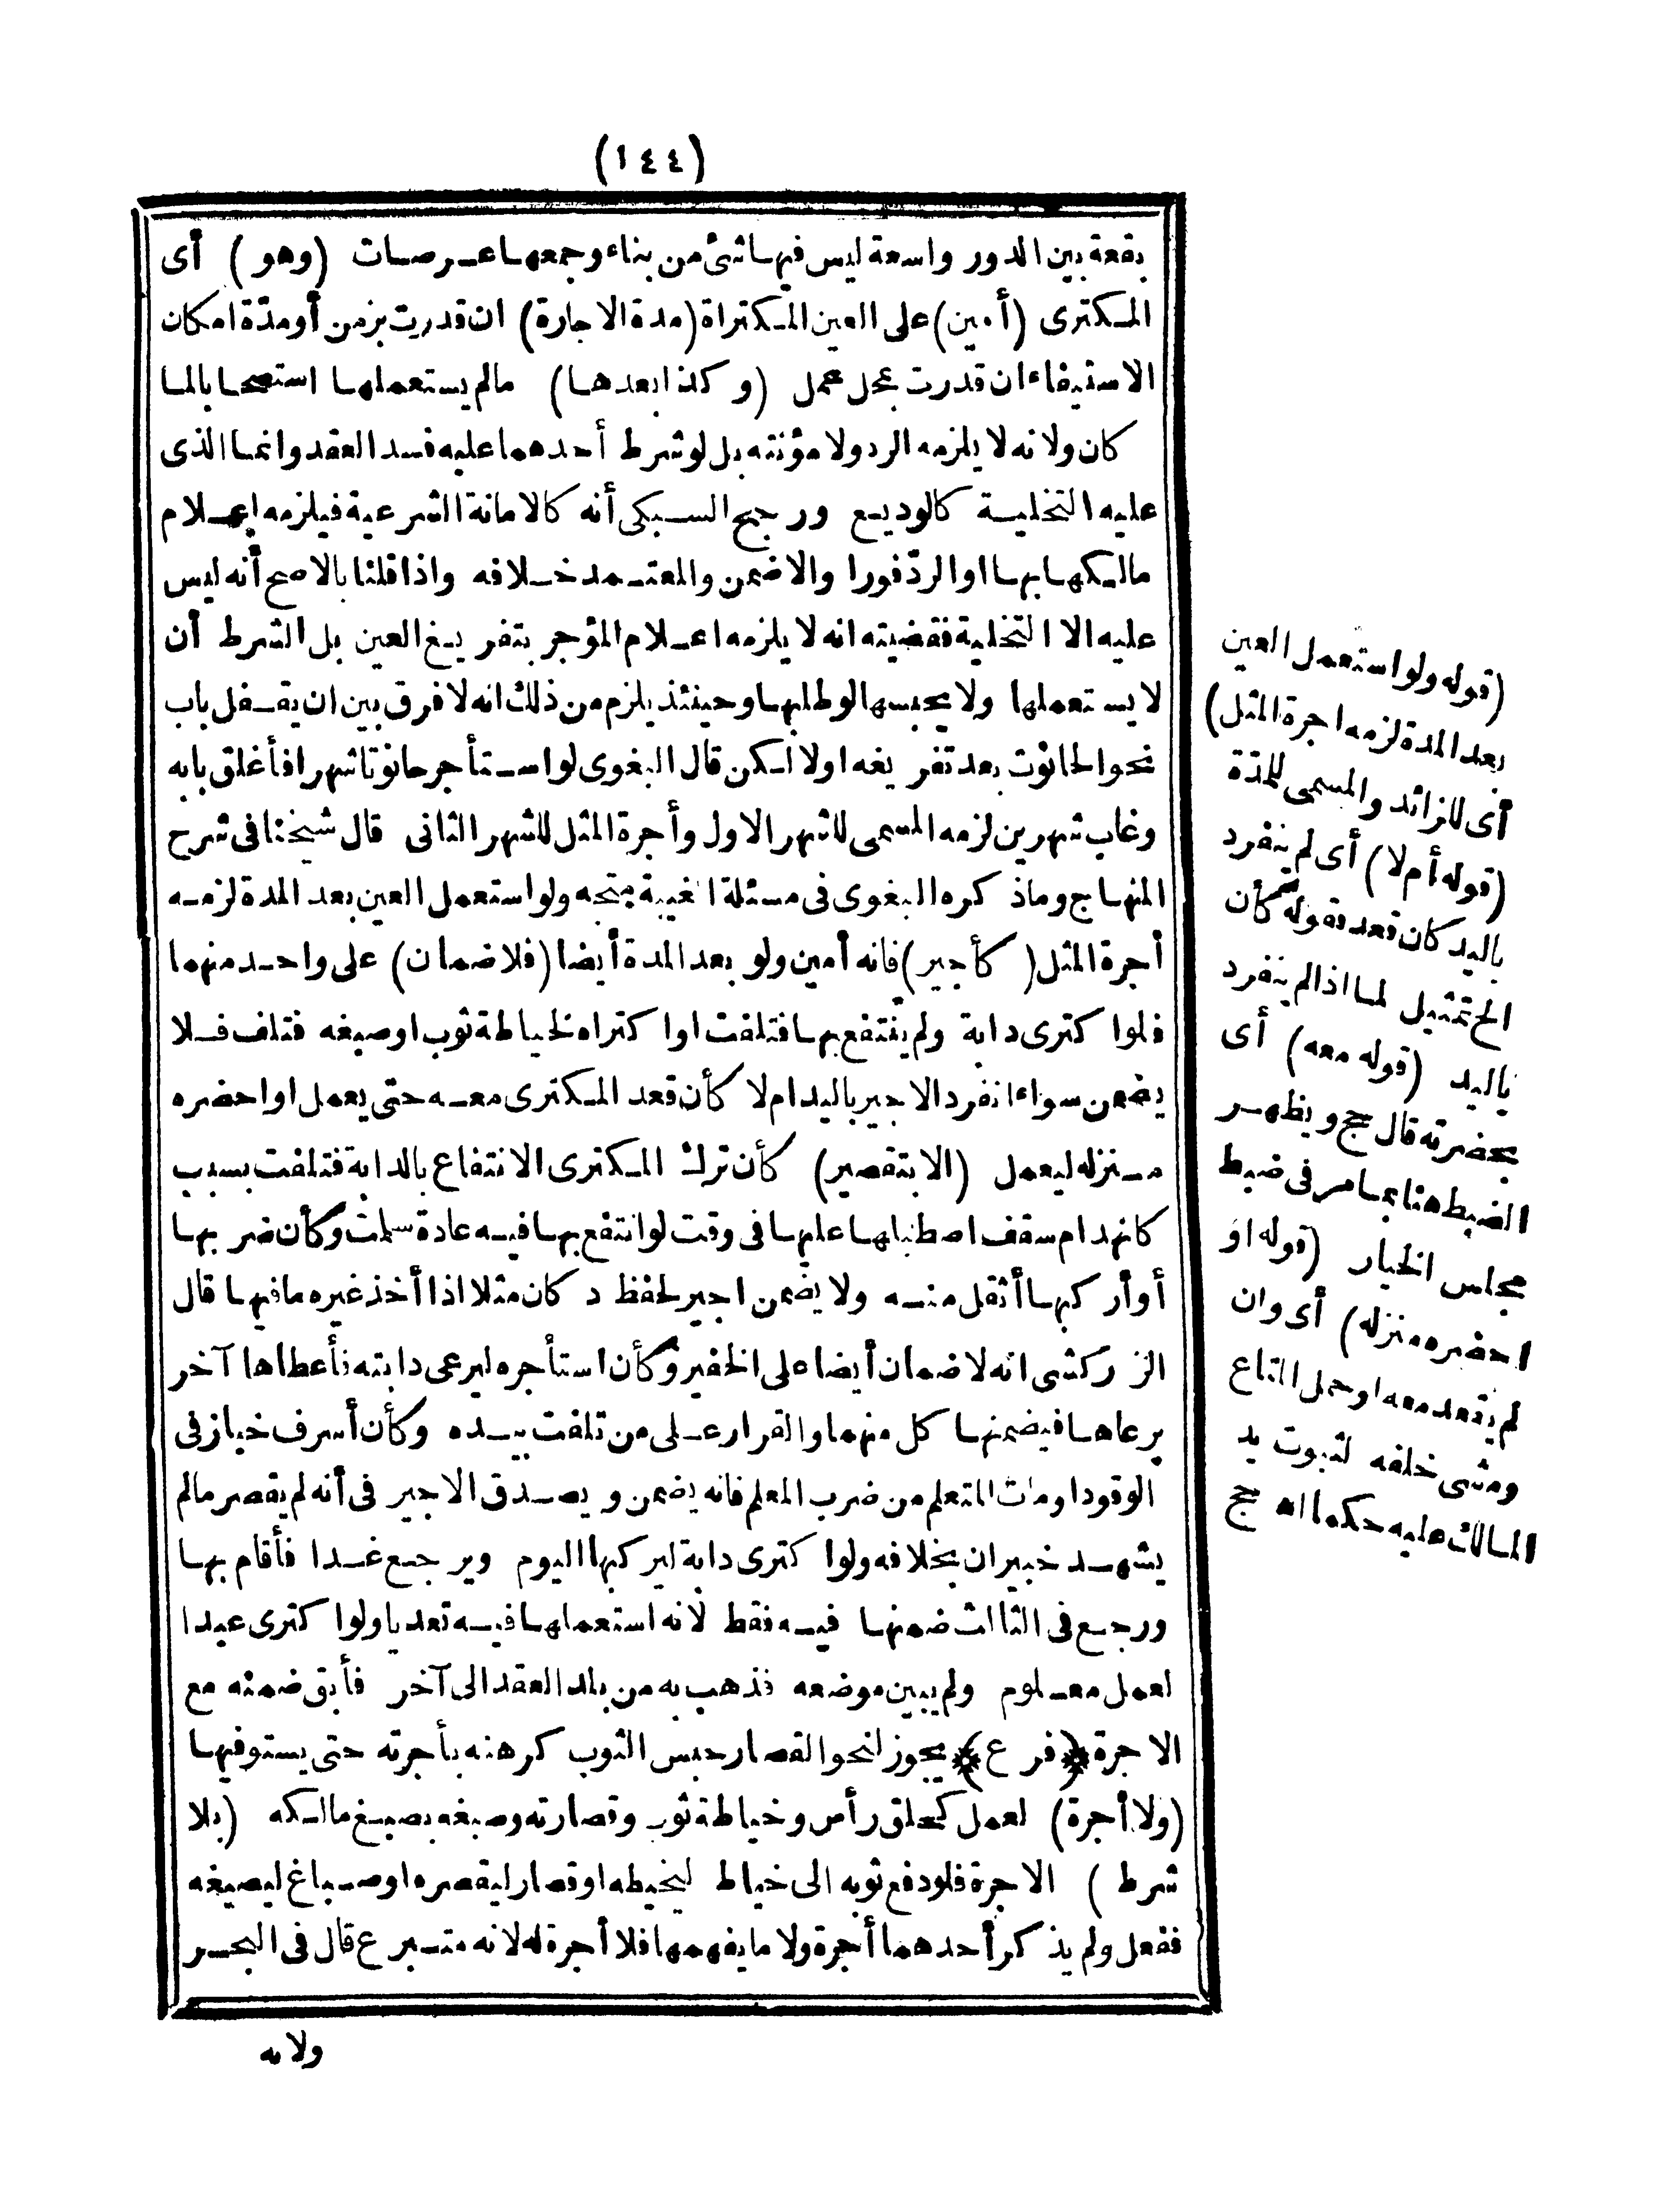 (١٤٤)
بقعة بين الدور واسعة ليس فيها شئ من بناء وجمعها عرصات (وهو) أى
المكترى (أمين) على العين المكتراة (مدة الاجارة) ان قدرت بزمن أو مدّة امكان
الاستيفاء ان قدرت بمحل عمل (وكذا بعدها) مالم يستعملها استصحابا لما
كان ولانه لا يلزمه الرد ولا مؤنته بل لو شرط أحدهما عليه فسد العقد وانما الذى
عليه التخلية كالوديع ورجح السبكى أنه كالامانة الشرعية فيلزمه اعلام
مالكها بها او الردّ فورا والاضمن والمعتمد خلافه واذا قلنا بالاصح أنه ليس
عليه الا التخلية فقضيته انه لا يلزمه اعلام المؤجر بتفريغ العين بل الشرط أن
لا يستعملها ولا يحبسها لو طلبها وحينئذ يلزم من ذلك انه لا فرق بين ان يقفل باب
نحو الحانوت بعد تفريغه اولا لكن قال البغوى لو استأجر حانوتا شهرا فأغلق بابه
وغاب شهرين لزمه المسمى للشهر الاول وأجرة المثل للشهر الثانى قال شيخنا فى شرح
المنهاج وما ذكره البغوى فى مسئلة الغيبة متجه ولو استعمل العين بعد المدة لزمه
أجرة المثل (كأجير) فانه أمين ولو بعد المدة أيضا (فلا ضمان) على واحد منهما
فلو اكترى دابة ولم ينتفع بها فتلفت او اكتراه لخياطة ثوب او صبغه فتلف فلا
يضمن سواء انفرد الاجير باليد ام لا كأن قعد المكترى معه حتى يعمل او احضره
منزله ليعمل (الا بتقصير) كأن ترك المكترى الانتفاع بالدابة فتلفت بسبب
كانهدام سقف اصطبلها عليها فى وقت لو انتفع بها فيه عادة سلمت وكأن ضربها
أو أركبها أثقل منه ولا يضمن اجير لحفظ دكان مثلا اذا أخذ غيره ما فيها قال
الزركشى انه لا ضمان أيضا على الخفير وكأن استأجره ليرعى دابته فأعطاها آخر
يرعاها فيضمنها كل منهما والقرار على من تلفت بيده وكأن أسرف خباز فى
الوقود او مات المتعلم من ضرب المعلم فانه يضمن ويصدق الاجير فى أنه لم يقصر مالم
يشهد خبيران بخلافه ولو اكترى دابة ليركبها اليوم ويرجع غدا فأقام بها
ورجع فى الثالث ضمنها فيه فقط لانه استعملها فيه تعديا ولو اكترى عبدا
لعمل معلوم ولم يبين موضعه فذهب به من بلد العقد الى آخر فأبق ضمنه مع
الاجرة ﴿فرع﴾ يجوز لنحو القصار حبس الثوب كرهنه بأجرته حتى يستوفيها
(ولا أجرة) لعمل كحلق رأس وخياطة ثوب وقصارته وصبغه بصبغ مالكه (بلا
شرط) الاجرة فلو دفع ثوبه الى خياط ليخيطه او قصار ليقصره او صباغ ليصبغه
ففعل ولم يذكر أحدهما أجرة ولا ما يفهمها فلا أجرة له لانه متبرع قال فى البحر
ولانه
(قوله ولو استعمل العين
بعد المدة لزمه اجرة المثل)
أى للزائد والمسمى للمدّة
(قوله أم لا) أى لم ينفرد
باليد كان قعد فقوله كأن
الخ تمثيل لما اذا لم ينفرد
باليد (قوله معه) أى
بحضرته قال حج ويظهر
الضبط هنا بما مر فى ضبط
مجلس الخيار (قوله او
احضره منزله) أى وان
لم يقعد معه او حمل المتاع
ومشى خلفه لثبوت يد
المالك عليه حكما اه حج